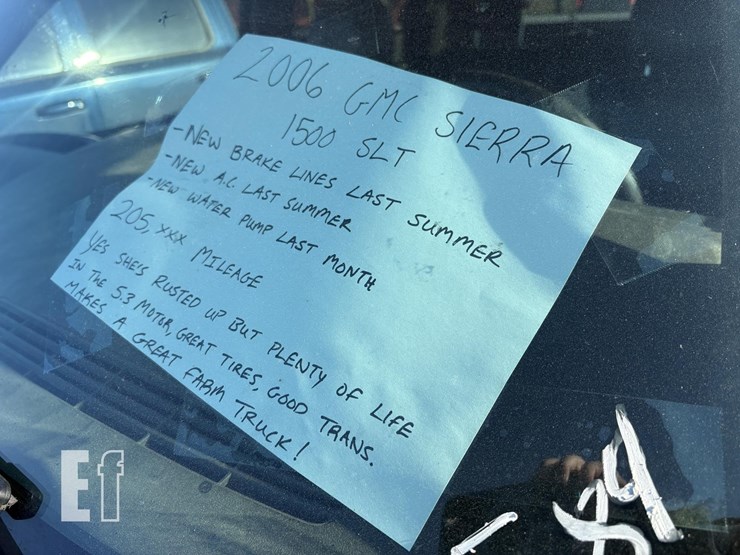 2006 GMC SIERRA
1500 SLT
-NEW BRAKE LINES LAST SUMMER
-NEW A.C. LAST SUMMER
-NEW WATER PUMP LAST MONTH
205,xxx MILEAGE
YES SHE'S RUSTED UP BUT PLENTY OF LIFE
IN THE 5.3 MOTOR, GREAT TIRES, GOOD TRANS.
MAKES A GREAT FARM TRUCK!
Ef